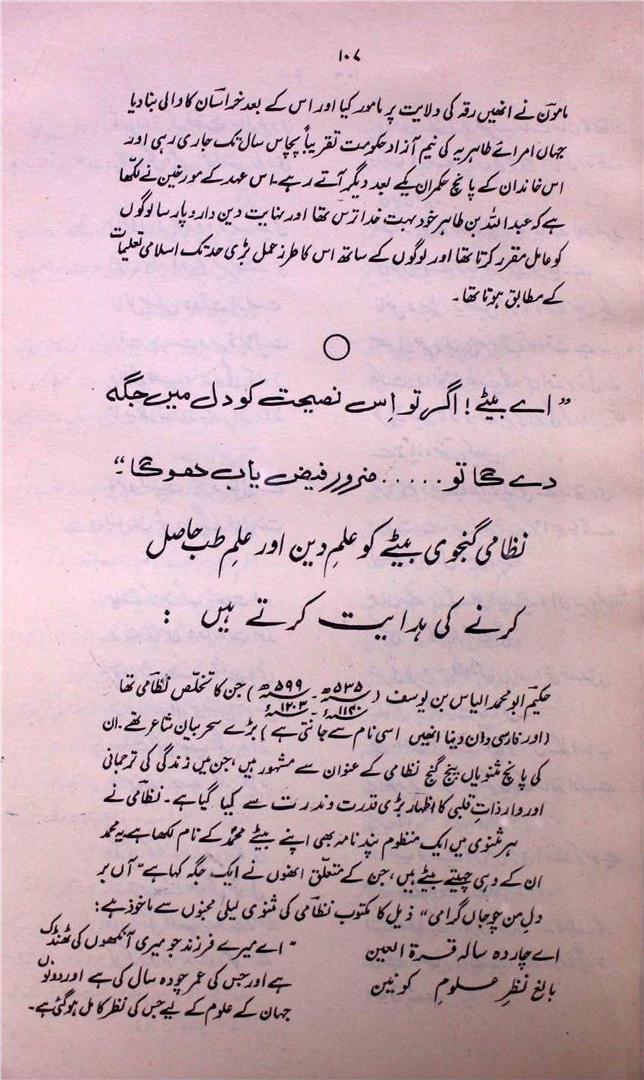 ۱۰۷
مامون نے انھیں رقہ کی ولایت پر مامور کیا اور اس کے بعد خراسان کا والی بنا دیا
جہاں امرائے طاہریہ کی نیم آزاد حکومت تقریباً پچاس سال تک جاری رہی اور
اس خاندان کے پانچ حکمران یکے بعد دیگر آتے رہے۔ اس عہد کے مورخین نے لکھا
ہے کہ عبداللہ بن طاہر خود بہت خدا ترس تھا اور نہایت دین دار و پارسا لوگوں
کو عامل مقرر کرتا تھا اور لوگوں کے ساتھ اس کا طرز عمل بڑی حد تک اسلامی تعلیمات
کے مطابق ہوتا تھا۔
"اے بیٹے! اگر تو اِس نصیحت کو دل میں جگہ
دے گا تو ..... ضرور فیض یاب ہوگا۔"
نظامی گنجوی بیٹے کو علمِ دین اور علمِ طب حاصل
کرنے کی ہدایت کرتے ہیں :
حکیم ابو محمد الیاس بن یوسف (۵۳۵ھ - ۵۹۹ھ / ۱۱۴۰ء - ۱۲۰۳ء) جن کا تخلّص نظامی تھا
(اور فارسی داں دنیا انھیں اسی نام سے جانتی ہے) بڑے سحر بیان شاعر تھے۔ ان
کی پانچ مثنویاں پنج گنج نظامی کے عنوان سے مشہور ہیں، جن میں زندگی کی ترجمانی
اور وارداتِ قلبی کا اظہار بڑی قدرت و ندرت سے کیا گیا ہے۔ نظامی نے
ہر مثنوی میں ایک منظوم پند نامہ بھی اپنے بیٹے محمدؐ کے نام لکھا ہے یہ محمد
ان کے وہی چہیتے بیٹے ہیں، جن کے متعلق انھوں نے ایک جگہ کہا ہے "آں بر
دلِ من چو جاں گرامی" ذیل کا مکتوب نظامی کی مثنوی لیلیٰ مجنوں سے ماخوذ ہے:
اے چار دہ سالہ قرۃ العین
بالغ نظرِ علومِ کونین
"اے میرے فرزند جو میری آنکھوں کی ٹھنڈک
ہے اور جس کی عمر چودہ سال کی ہے اور دونوں
جہان کے علوم کے لیے جس کی نظر کامل ہوگئی ہے۔